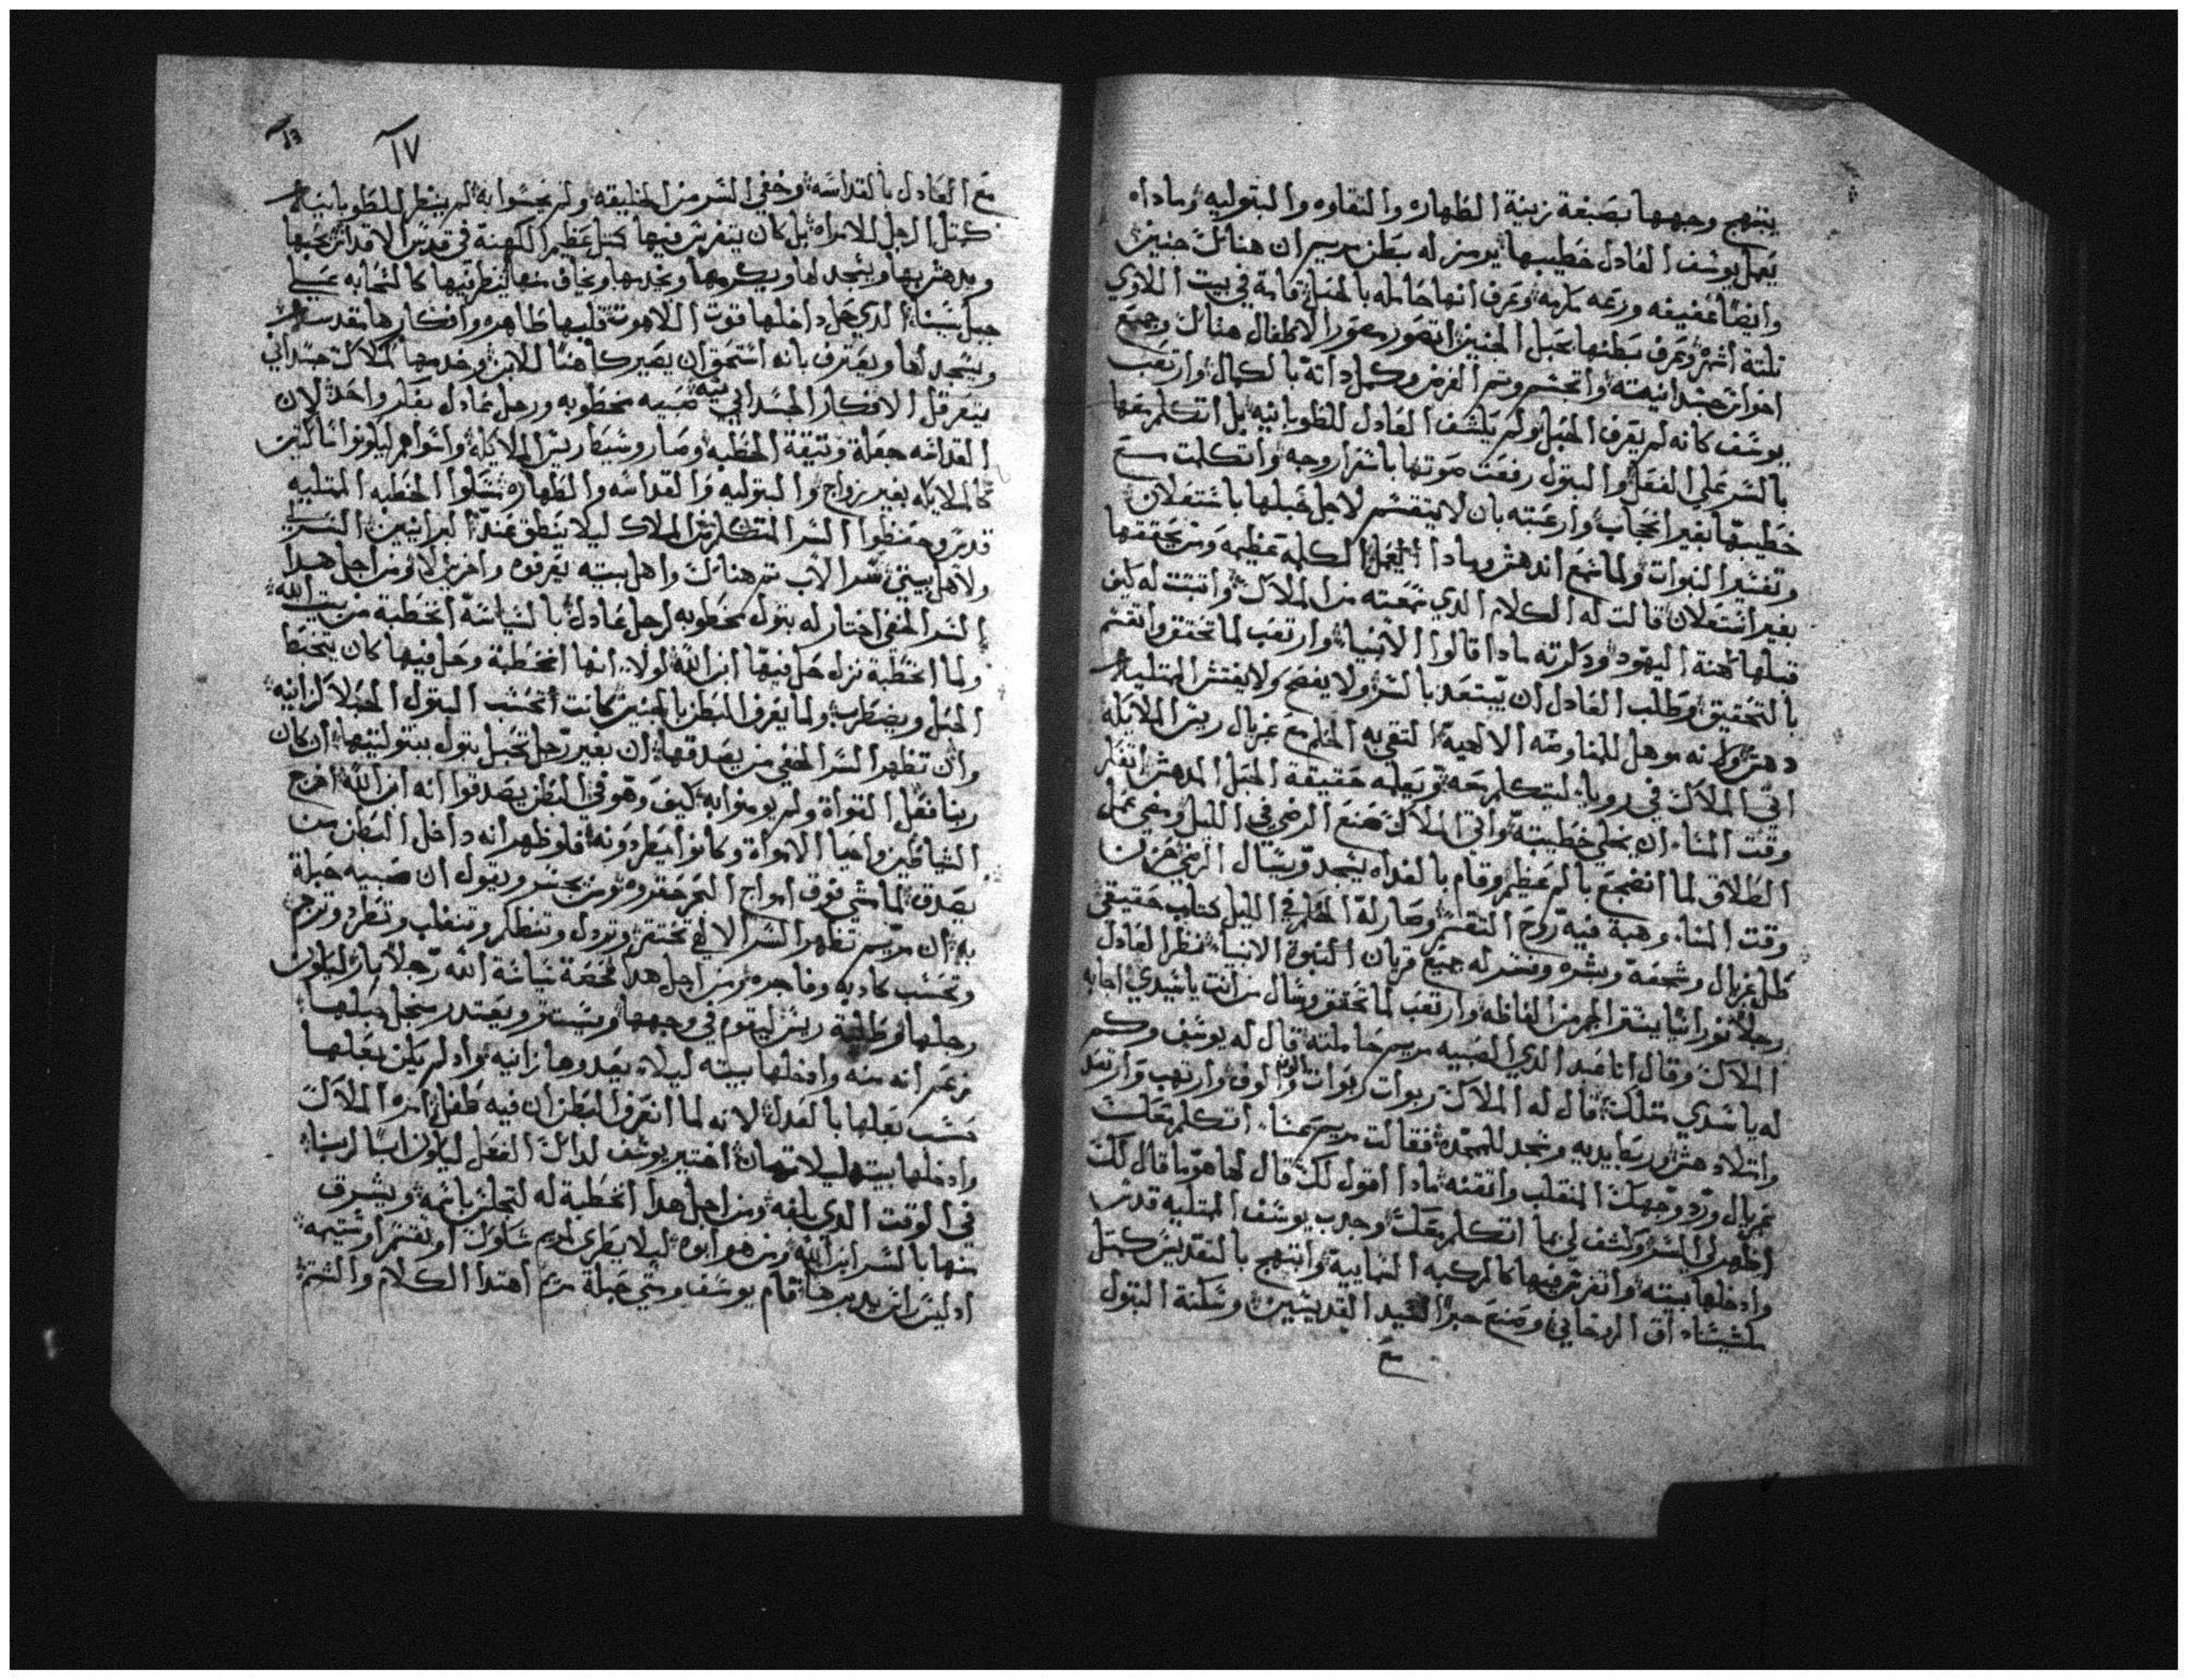 يبتهج وجهها بصبغة زينة الطهاره والنقاوه والبتوليه وماداه
يعمل يوسف العادل خطيبها يرمز له بطن مريم ان هنالك جنين
وايضًا عفيفه ورعه كارمه وعرف انها حامله بالحبل قامة في بيت اللاوي
تلتة اشهر وعرف بطنها بحبل الجنين اتصور صور الاطفال هنالك وجميع
يوسف كانه لم يعرف الحبل ولم يكشف العادل للطوبانيه بل اتكلم معها
بالسر علي الفعل والبتول رفعت صوتها باشرار وجه واتكلمت مع
خطيبها بغير احجاب وارعبته بان لا ينقسم لاجل حبلها باشتعلان
وتفسير النبوات ولما سمع اندهش ومادا العمل الكلمه عظيمه ومن يحققها
بغير اشتعلان قالت له الكلام الدي سمعته من الملاك واتبتت له كيف
قبلها كهنة اليهود ودكرته مادا قالوا الانبيا وارتعب لما تحقق واتقسم
بالتحقيق وطلب العادل ان يبتعد بالسر ولا يفضح ولا يفتش الممتليه
دهش ولانه موهل للمناوضه الالهية التقي به الحلم مع غبريال ريس الملايكه
اتي الملاك في رويا ليتكلم معه ويعلمه حقيقة الحبل المدهش اتفكر
وقت المسا ان يخلي خطيبته واتي الملاك صنع الرضي في الليل ومضي عمل
الطلاق لما انضجع بالم عظيم وقام بالغداه يسجد ويسال الرضي حزن
وقت المسا وهبة فيه روح التقسم وصار له الحلم في الليل كتاب حقيقي
طل غبريال وشجعه وبشره وفسر له جميع قربان النبوة الانبيا نظر العادل
رجلاً نورانيًا ينتر الجمر من الفاظه وارتعب لما تحقق وسال من انت يا سيدي اجابه
الملاك وقال انا عبد الدي الصبيه مريم حاملته قال له يوسف وكم
له يا سيدي متلك قال له الملاك ربوات ربوات والوف وارتهب وارتعد
وامتلا دهش وربط يديه وسجد للمجده فقالت مريم عشا اتكلم معك
غبريال ورد وجهك المنقلب واتقنه مادا اقول لك قال لها هو ما قال لك
اظهر لي السر وكشف لي بما اتكلم معك وجدب يوسف الممتليه قدس
وادخلها بيته واتفرس فيها كالمركبه السماييه وابتهج بالتقديس كمتل
ملشيساداق الروحاني وصنع حبر السيد القديسين وسكنة البتول
مع
١٧
مع العادل بالقداسه وخفي السر من الخليقه ولم يحسوا به لم ينظر للطوبانيه
كمتل الرجل للامراه بل كان يتفرس فيها كمتل عظيم الكهنة في قدس الاقداس يحبها
ويدهش بها ويسجد لها ويكرمها ويخدمها ويخاف منها ينظر فيها كالسحابه علي
جبل سينا الدي حل داخلها قوت اللاهوت قلبها طاهره وافكارها مقدسه
ويسجد لها ويعترف بانه استحق ان يصير كاهنًا للابن وخدمها كملاك جسداني
يتعرقل الافكار الجسدانيه صبيه مخطوبه ورجل عادل بفكر واحد لان
القداسه جعلة وتيقة الخطبه وصار وسيط ريس الملايكه واتواهم ليكونوا ساكنين
كالملايكه بغير زواج والبتوليه والقداسه والطهاره شكلوا الخطبه الممتليه
قدس وحفظوا السر المتكلم من الملاك ليلا ينطق عند البرانيين السر
ولاهل بيتي سر الاب تم هنالك واهل بيته يعرفوه واخرين لا ومن اجل هدا
السر الخفي اختار له بتول مخطوبه لرجل عادل بالسياسة اتخطبة من بيت الله
ولما اتخطبة نزل حل فيها ابن الله لولا انها اتخطبة وحل فيها كان يتخبط
الحبل ويضطرب ولما يعرف البطن بالجنين كانت اتحسب البتول الحبلا كزانيه
وان تظهر السر الخفي من يصدقها ان بغير رجل تحبل بتول ببتوليتها ان كان
ربنا فعل القوأة ولم يومنوا به كيف وهو في البطن يصدقوا انه ابن الله اخرج
الشياطين واحيا الاموات وكانوا يطردونه فلو ظهر انه داخل البطن من
يصدق لما مشي فوق امواج البحر حقروه ومن يجسر ويقول ان صبيه حبلة
به ان مريم تظهر السر الالاهي تحتقر وتردل وتنظلم وتنغلب وتطرد وترجم
وتحسب كادبه وفاجره ومن اجل هدا فحصة سياسة الله رجلاً بار ليكون
رجلها وطلبة ريس ليقوم في وجهها ويستر ويعتدر من اجل حبلها
زعم انه منه وادخلها بيته ليلا يعدوها زانيه واد لم يكن بعلها
حسب بعلها بالعدل لانه لما انعرف البطن ان فيه طفل امره الملاك
وادخلها بيته ليلا تتهان اختير يوسف لدالك الفعل ليكون ابًا لربنا
في الوقت الدي بلغه ومن اجل هدا اتخطبة له لتجلس باسمه ويشرق
منها بالسر ابن الله ومن هو ابوه ليلا يطري لمريم شكوك او تقسم او شتيمه
ادليس اتي يدبرها قام يوسف وستي حبلة مريم اهتدا الكلام والشتم